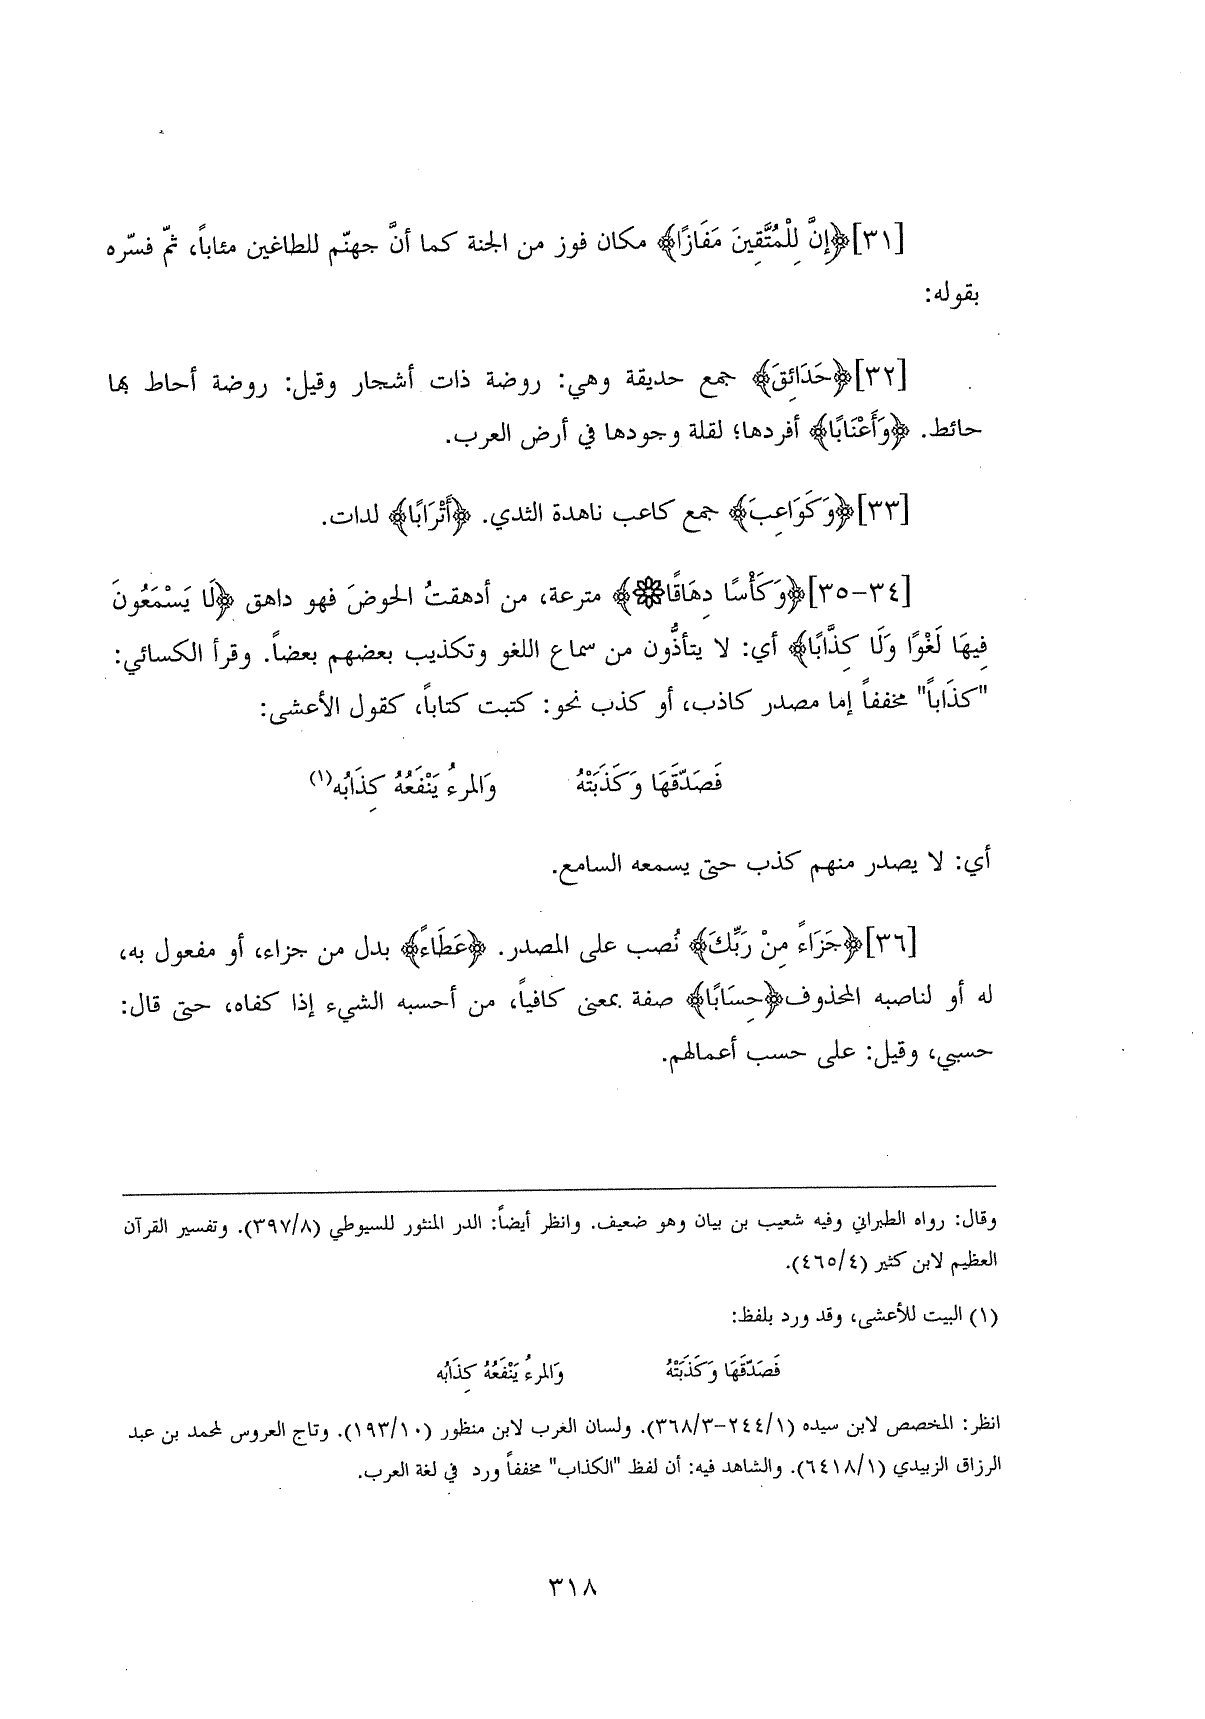 [٣١] ﴿إِنَّ لِلْمُتَّقِينَ مَفَازًا﴾ مكان فوز من الجنة كما أنَّ جهنّم للطاغين مئاباً، ثمّ فسّره
بقوله:
[٣٢] ﴿حَدَائِقَ﴾ جمع حديقة وهي: روضة ذات أشجار وقيل: روضة أحاط بها
حائط. ﴿وَأَعْنَابًا﴾ أفردها؛ لقلة وجودها في أرض العرب.
[٣٣] ﴿وَكَوَاعِبَ﴾ جمع كاعب ناهدة الثدي. ﴿أَتْرَابًا﴾ لدات.
[٣٤-٣٥] ﴿وَكَأْسًا دِهَاقًا﴾ مترعة، من أدهقتُ الحوضَ فهو داهق ﴿لَا يَسْمَعُونَ
فِيهَا لَغْوًا وَلَا كِذَّابًا﴾ أي: لا يتأذُّون من سماع اللغو وتكذيب بعضهم بعضاً. وقرأ الكسائي:
"كذَاباً" مخففاً إما مصدر كاذب، أو كذب نحو: كتبت كتاباً، كقول الأعشى:
فَصَدّقَهَا وَكَذَبَتْهُ وَالمرءُ يَنْفَعُهُ كِذَابُه(١)
أي: لا يصدر منهم كذب حتى يسمعه السامع.
[٣٦] ﴿جَزَاءً مِنْ رَبِّكَ﴾ نُصب على المصدر. ﴿عَطَاءً﴾ بدل من جزاء، أو مفعول به،
له أو لناصبه المحذوف ﴿حِسَابًا﴾ صفة بمعنى كافياً، من أحسبه الشيء إذا كفاه، حتى قال:
حسبي، وقيل: على حسب أعمالهم.
وقال: رواه الطبراني وفيه شعيب بن بيان وهو ضعيف. وانظر أيضاً: الدر المنثور للسيوطي (٣٩٧/٨). وتفسير القرآن
العظيم لابن كثير (٤٦٥/٤).
(١) البيت للأعشى، وقد ورد بلفظ:
فَصَدّقَهَا وَكَذَبَتْهُ وَالمرءُ يَنْفَعُهُ كِذَابُه
انظر: المخصص لابن سيده (٢٤٤/١-٣٦٨/٣). ولسان العرب لابن منظور (١٩٣/١٠). وتاج العروس لمحمد بن عبد
الرزاق الزبيدي (٦٤١٨/١). والشاهد فيه: أن لفظ "الكذاب" مخففاً ورد في لغة العرب.
٣١٨